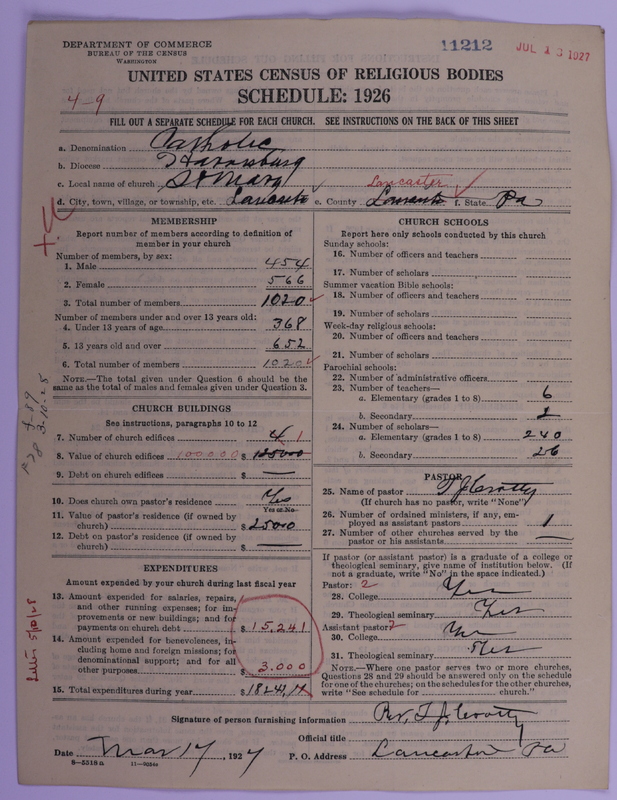 DEPARTMENT OF COMMERCE
BUREAU OF THE CENSUS
WASHINGTON
11212
JUL 13 1927
UNITED STATES CENSUS OF RELIGIOUS BODIES
SCHEDULE: 1926
4-9
FILL OUT A SEPARATE SCHEDULE FOR EACH CHURCH. SEE INSTRUCTIONS ON THE BACK OF THIS SHEET
a. Denomination Catholic
b. Diocese Harrisburg
c. Local name of church St Mary
Lancaster
d. City, town, village, or township, etc. Lancaster e. County Lancaster f. State Pa
MEMBERSHIP
Report number of members according to definition of
member in your church
Number of members, by sex:
1. Male 454
2. Female 566
3. Total number of members 1020
Number of members under and over 13 years old:
4. Under 13 years of age 368
5. 13 years old and over 652
6. Total number of members 1020
NOTE.—The total given under Question 6 should be the
same as the total of males and females given under Question 3.
CHURCH BUILDINGS
See instructions, paragraphs 10 to 12
7. Number of church edifices 4 1
8. Value of church edifices 100000 $ 125000
9. Debt on church edifices $ —
10. Does church own pastor's residence Yes
Yes or No
11. Value of pastor's residence (if owned by
church) $ 25000
12. Debt on pastor's residence (if owned by
church) $ —
EXPENDITURES
Amount expended by your church during last fiscal year
13. Amount expended for salaries, repairs,
and other running expenses; for im-
provements or new buildings; and for
payments on church debt $ 15,241
14. Amount expended for benevolences, in-
cluding home and foreign missions; for
denominational support; and for all
other purposes $ 3.000
15. Total expenditures during year $ 18241,
CHURCH SCHOOLS
Report here only schools conducted by this church
Sunday schools:
16. Number of officers and teachers
17. Number of scholars
Summer vacation Bible schools:
18. Number of officers and teachers
19. Number of scholars
Week-day religious schools:
20. Number of officers and teachers
21. Number of scholars
Parochial schools:
22. Number of administrative officers
23. Number of teachers—
a. Elementary (grades 1 to 8) 6
b. Secondary
24. Number of scholars—
a. Elementary (grades 1 to 8) 240
b. Secondary 26
PASTOR
25. Name of pastor T J Crotty
(If church has no pastor, write "None")
26. Number of ordained ministers, if any, em-
ployed as assistant pastors 1
27. Number of other churches served by the
pastor or his assistants —
If pastor (or assistant pastor) is a graduate of a college or
theological seminary, give name of institution below. (If
not a graduate, write "No" in the space indicated.)
Pastor: 2
28. College Yes
29. Theological seminary Yes
Assistant pastor: 2
30. College Yes
31. Theological seminary Yes
NOTE.—Where one pastor serves two or more churches,
Questions 28 and 29 should be answered only on the schedule
for one of the churches; on the schedules for the other churches,
write "See schedule for church."
Signature of person furnishing information Rev. T J Crotty
Official title
Date Mar 17, 1927 P. O. Address Lancaster Pa
8—5518a 11—9054